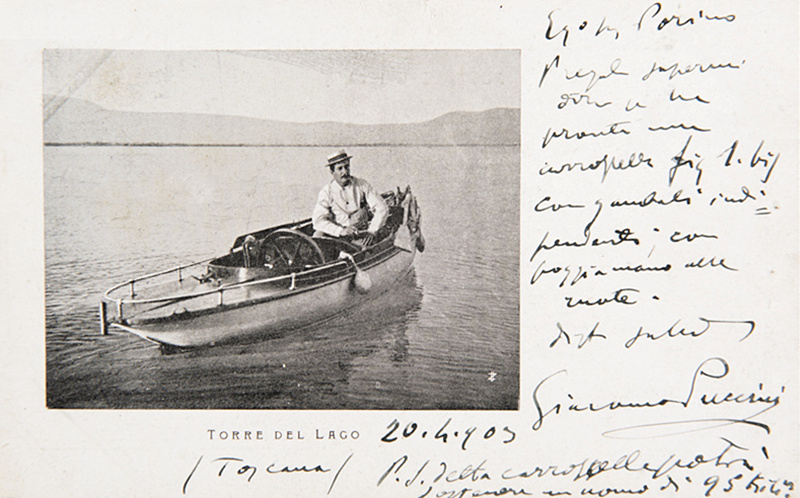 Egr Sig Porino
Prego sapermi
dire se ha
pronta una
carrozzella fig 1. bis
con gambali indi=
pendenti, con
poggiamano alle
ruote.
dist saluti
Giacomo Puccini
TORRE DEL LAGO 20.4.903
(Toscana) P.S. detta carrozzella potrà
sostenere un uomo di 95 kili?